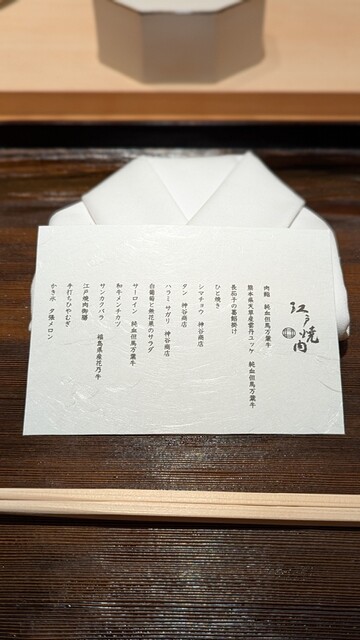 江戸焼肉
肉鮨 純血但馬万葉牛
熊本県天草産雲丹ユッケ 純血但馬万葉牛
長茄子の蕃餡掛け
ひと焼き
シマチョウ 神谷商店
タン 神谷商店
ハラミサガリ 神谷商店
白葡萄と無花果のサラダ
サーロイン 純血但馬万葉牛
和牛メンチカツ
サンカクバラ 福島県産花乃牛
江戸焼肉御膳
手打ちひやむぎ
かき氷 夕張メロン